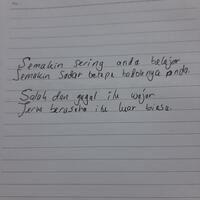 Semakin sering anda belajar
Semakin Sadar betapa bodohnya anda.
Salah dan gagal itu wajar
Terus berusaha itu luar biasa.